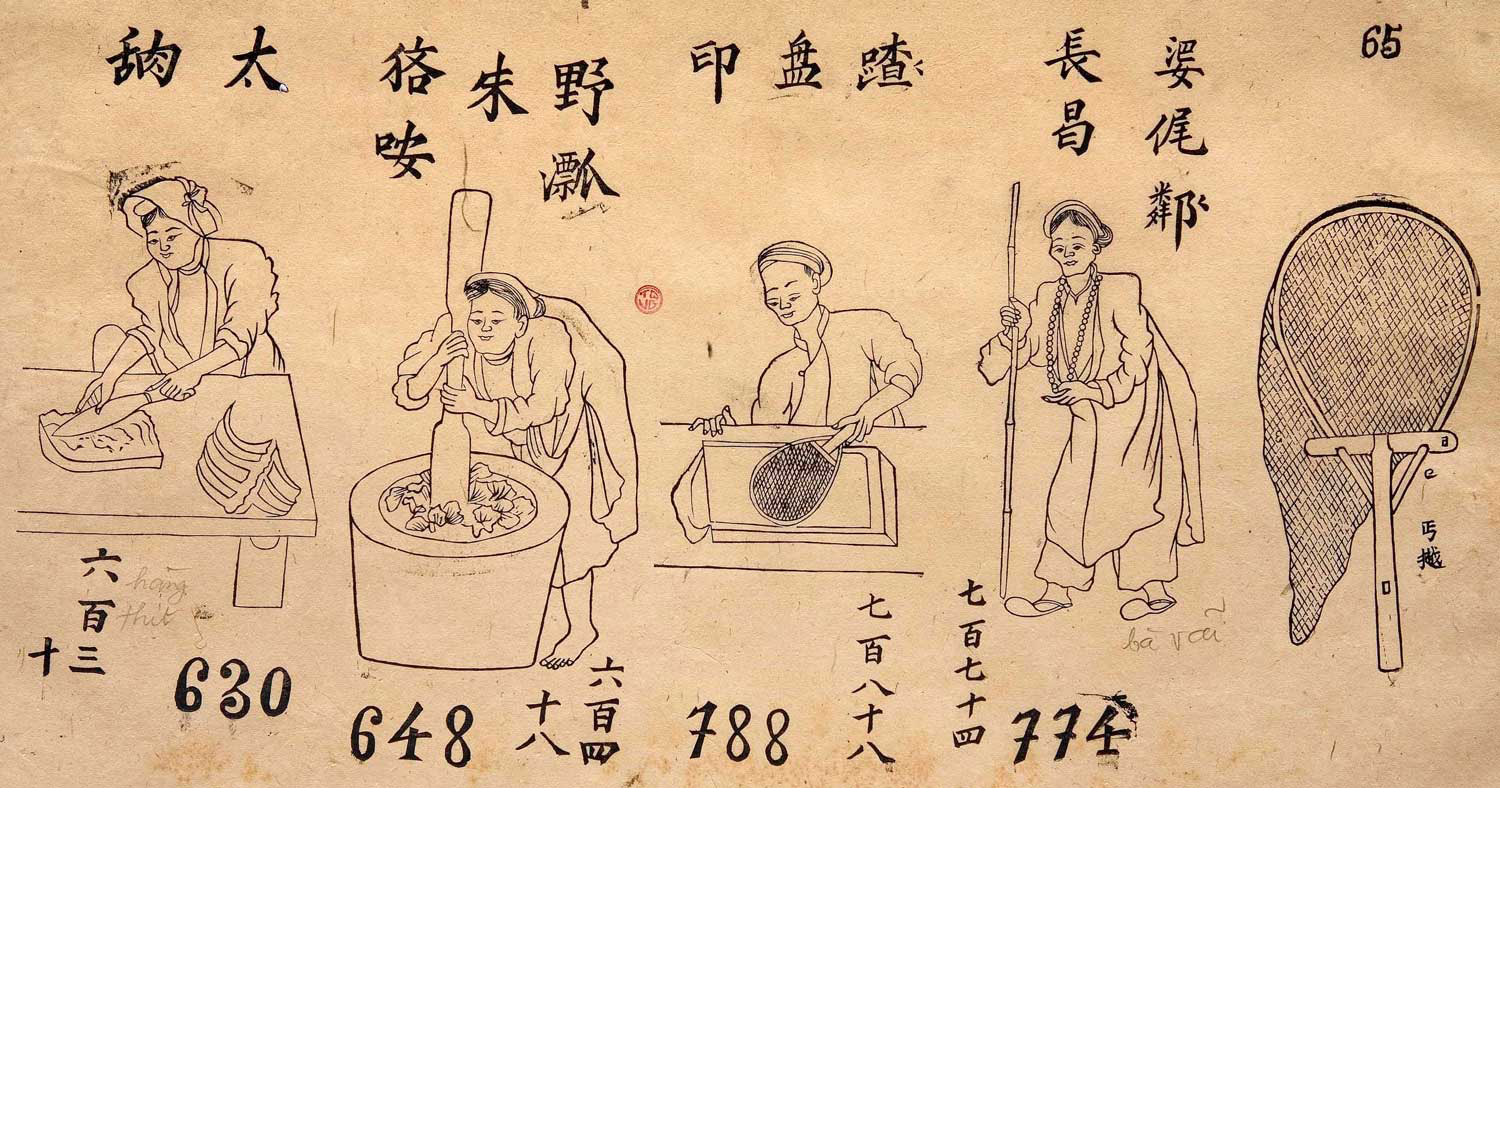 65
婆㑉鄰
長昌
蹅
盘
印
野瓢
朱
狢咹
太
丐
e
七百七十四
774
七百八十八
788
六百四十八
648
六百三十
630
hàng thịt
bà vãi